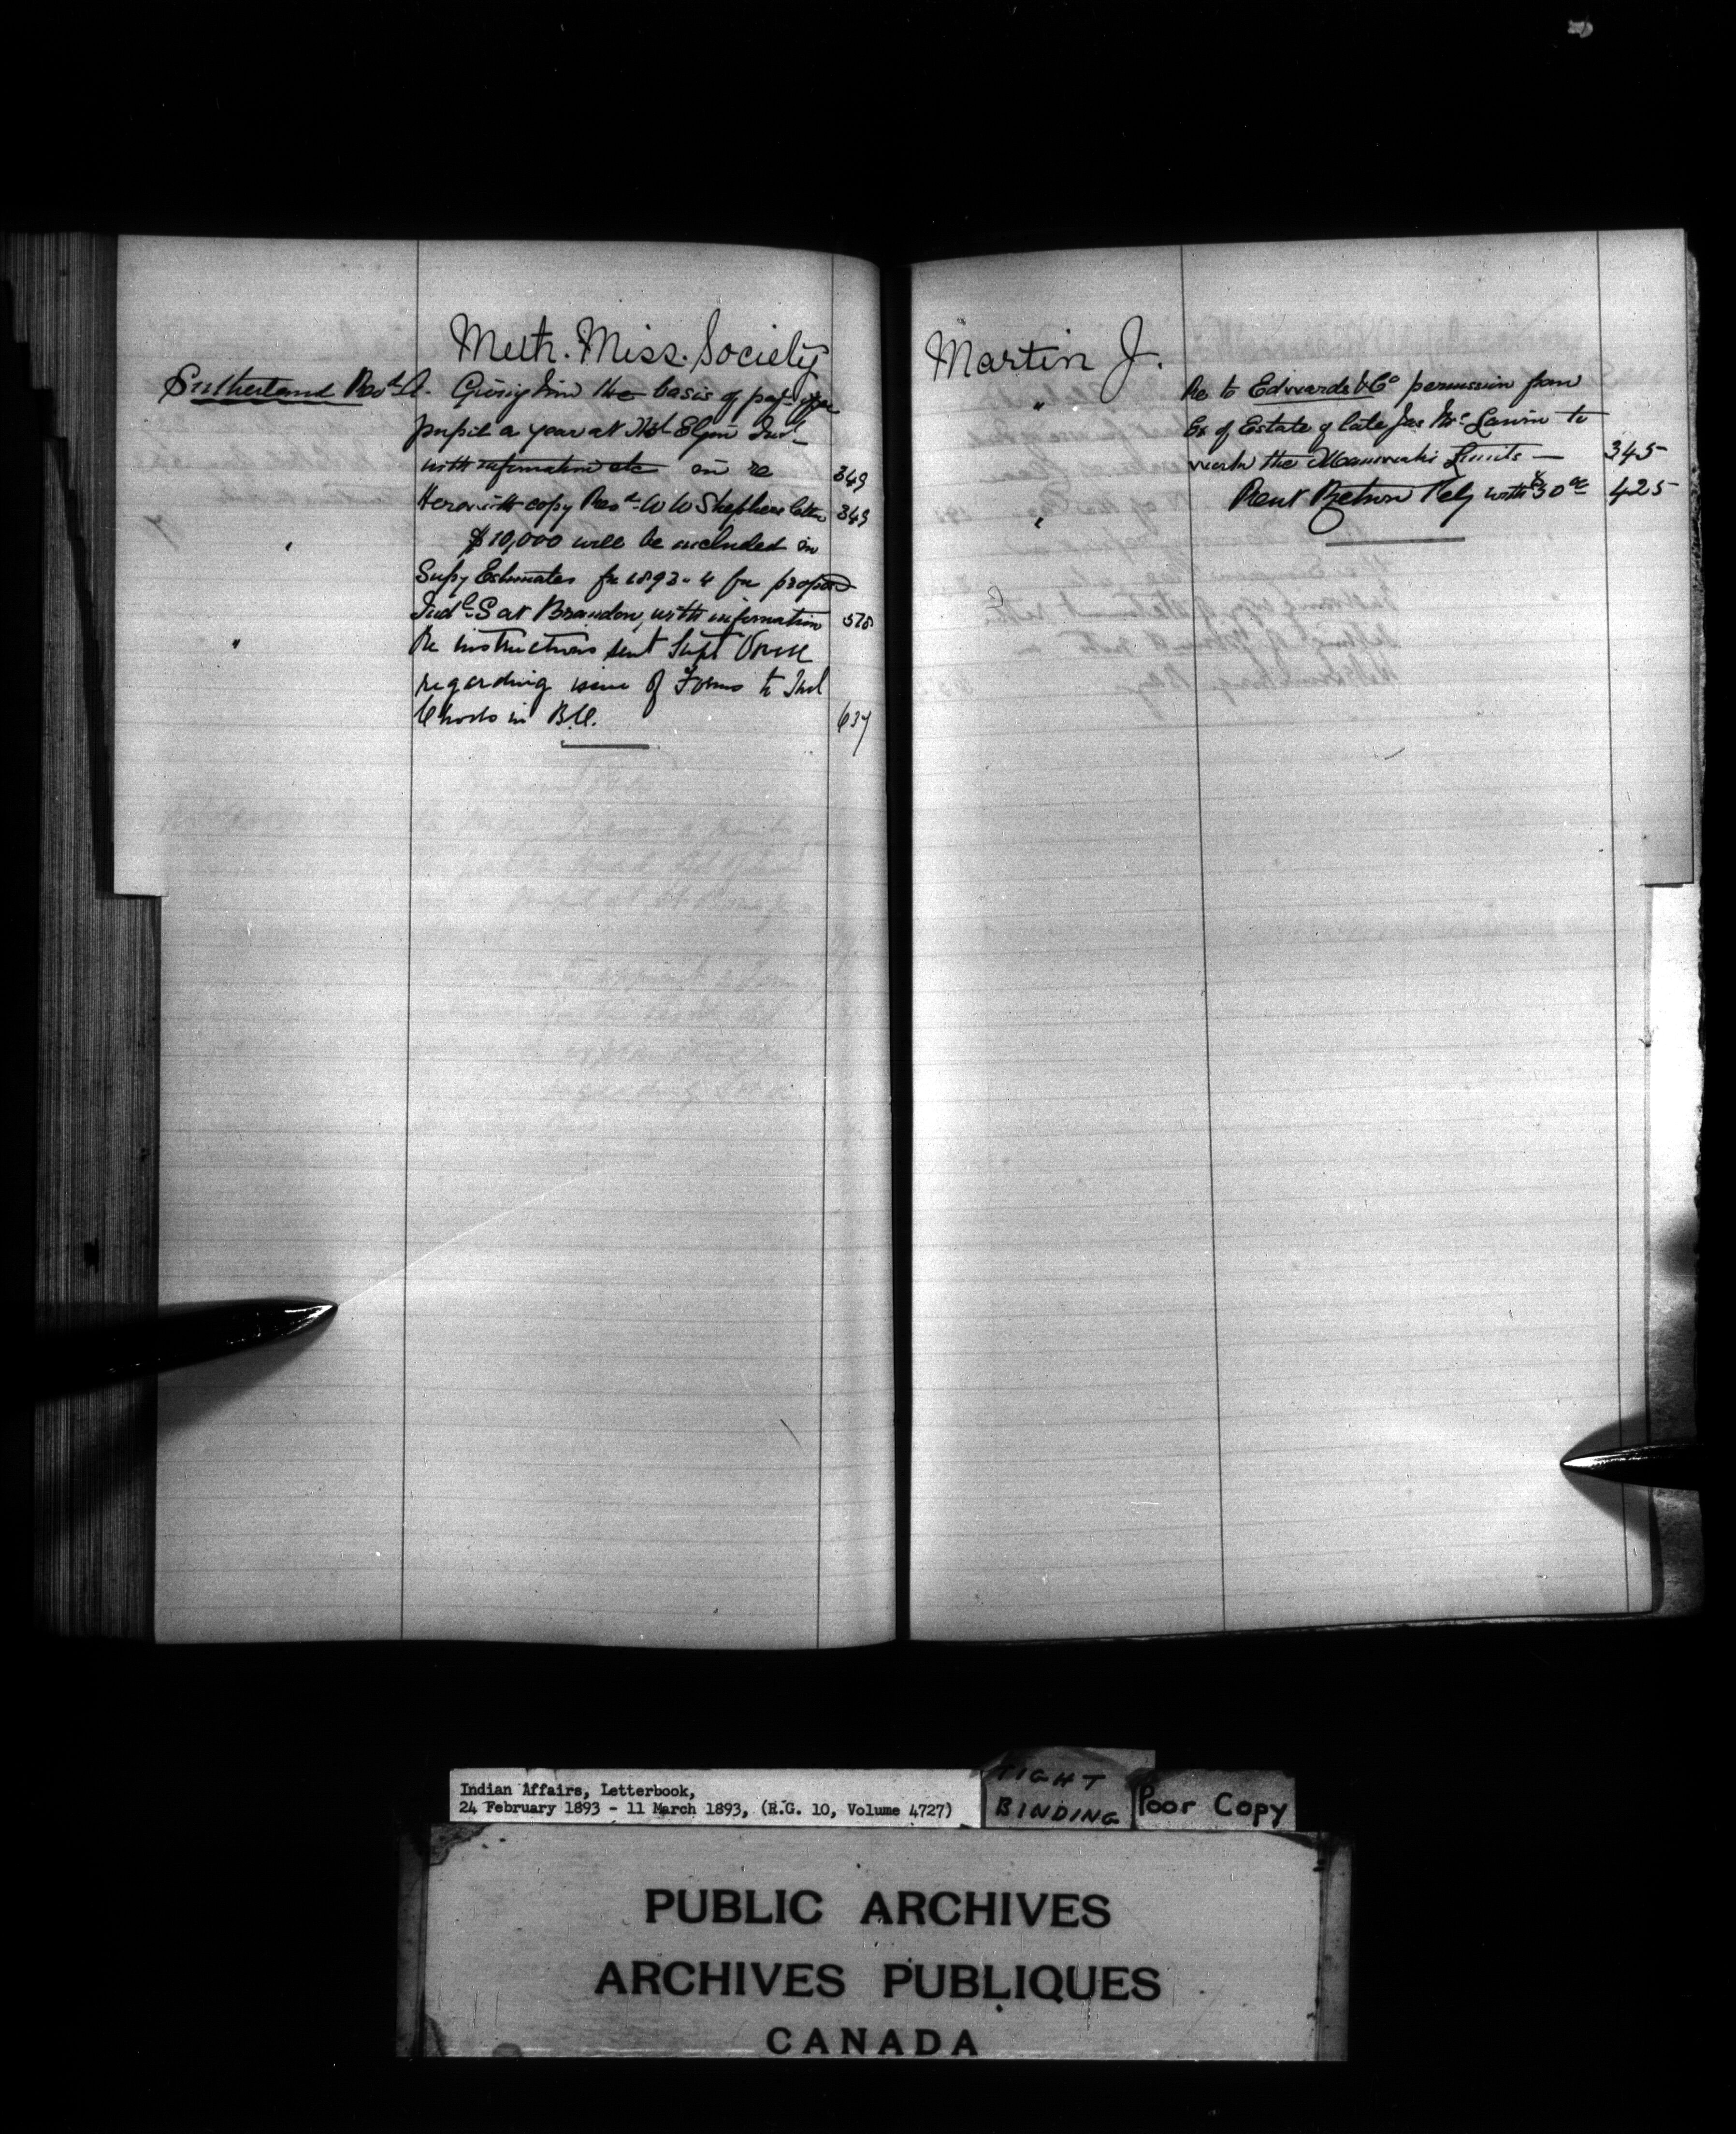 Meth. Miss. Society
Sutherland Revd A. Giving him the basis of pay per
pupil a year at Mt Elgin Indl
with information etc in re 349
Herewith copy Revd W W Shepherd letter 349
" $10,000 will be included in
Supy Estimates for 1893-4 for proposed
Indl S at Brandon, with information 578
" Re instructions sent Supt Vowell
regarding issue of Forms to Ind
Schools in B.C. 637
Martin J.
" Re to Edwards & Co permission from
Ex of Estate of late Jas McLaren to
work the Maniwaki Limits — 345
" Rent Return Rely with $30 00 425
Indian Affairs, Letterbook,
24 February 1893 - 11 March 1893, (R.G. 10, Volume 4727)
TIGHT
BINDING
Poor Copy
PUBLIC ARCHIVES
ARCHIVES PUBLIQUES
CANADA